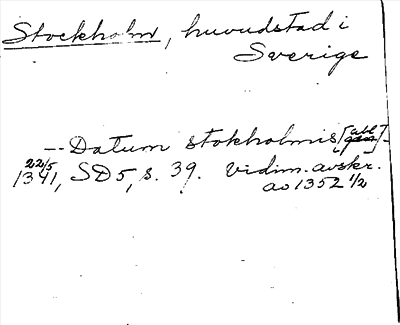 Stockholm, huvudstad i
Sverige
-- Datum stokholmis [abl
gen].
22/5
1341, SD 5, s. 39. Vidim. avskr.
av 1352 1/2